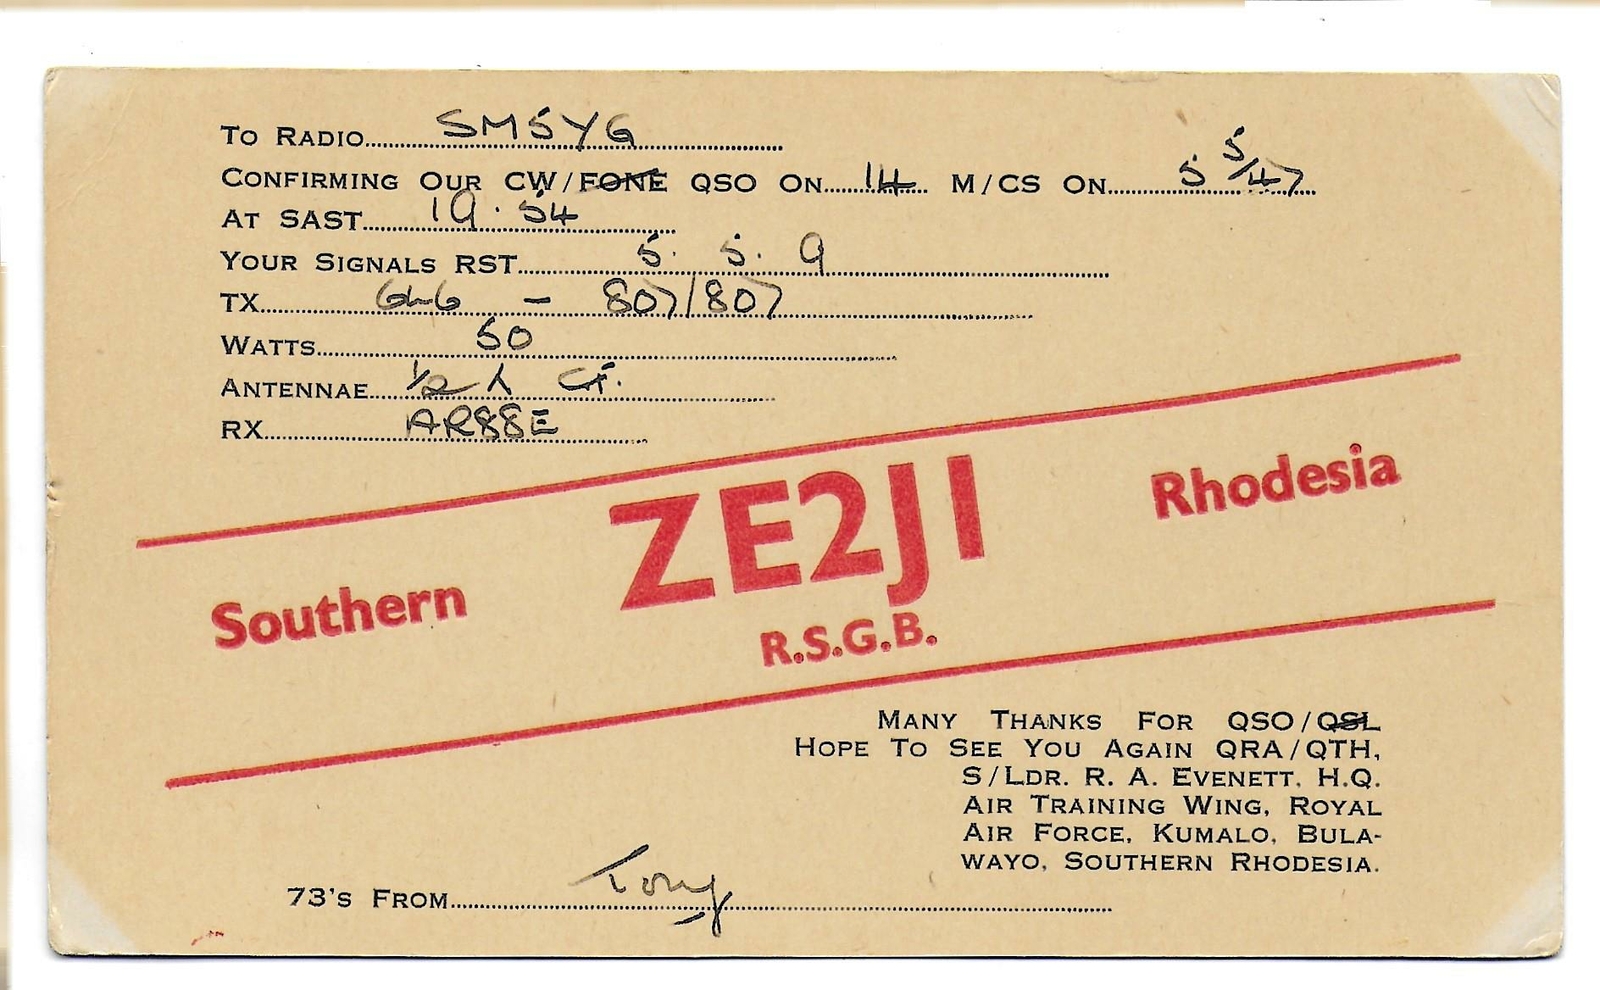 TO RADIO SM5YG
CONFIRMING OUR CW/FONE QSO ON 14 M/CS ON 5 5/47
AT SAST 19.54
YOUR SIGNALS RST 5. 5. 9
TX 6L6 - 807/807
WATTS 50
ANTENNAE 1/2 λ
RX AR88E
ZE2JI
Southern Rhodesia
R.S.G.B.
MANY THANKS FOR QSO/QSL
HOPE TO SEE YOU AGAIN QRA/QTH,
S/LDR. R. A. EVENETT, H.Q.
AIR TRAINING WING, ROYAL
AIR FORCE, KUMALO, BULA-
WAYO, SOUTHERN RHODESIA.
73'S FROM Tony